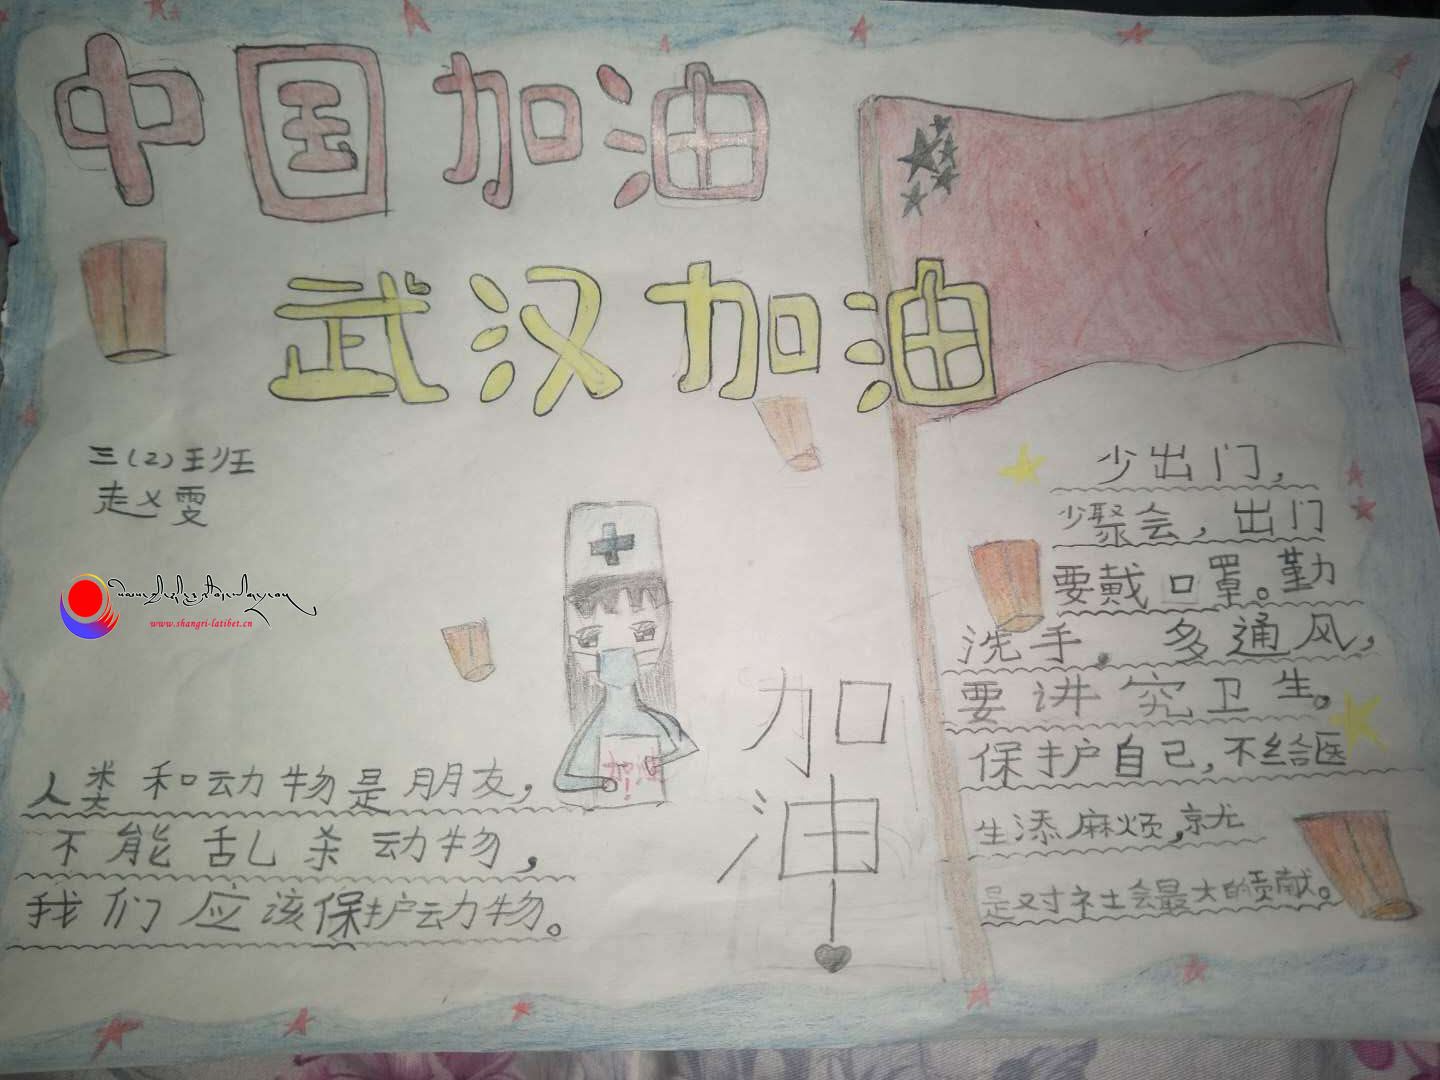 中国加油
武汉加油
三(2)班
赵义雯
www.shangri-latibet.cn
人类和动物是朋友，
不能乱杀动物，
我们应该保护动物。
加油!
加
油
少出门，
少聚会，出门
要戴口罩。勤
洗手。多通风，
要讲究卫生。
保护自己，不给医
生添麻烦，就
是对社会最大的贡献。